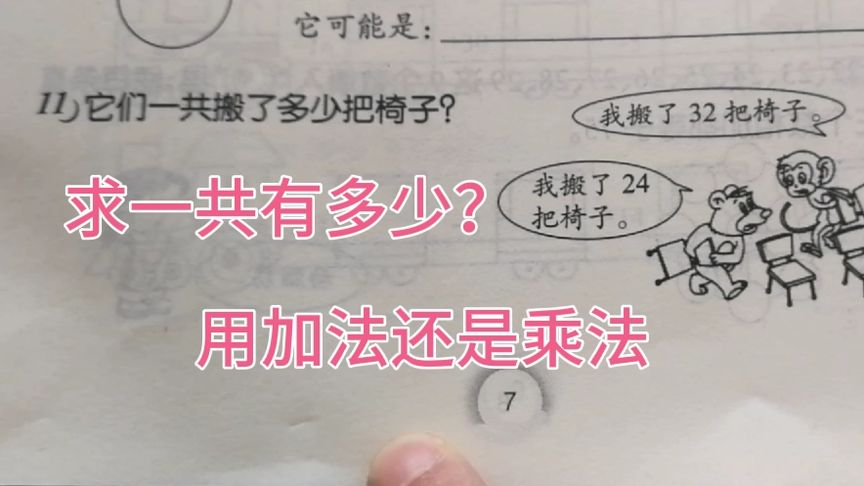 它可能是：
11)它们一共搬了多少把椅子？
我搬了 32 把椅子。
我搬了 24
把椅子。
求一共有多少？
用加法还是乘法
7